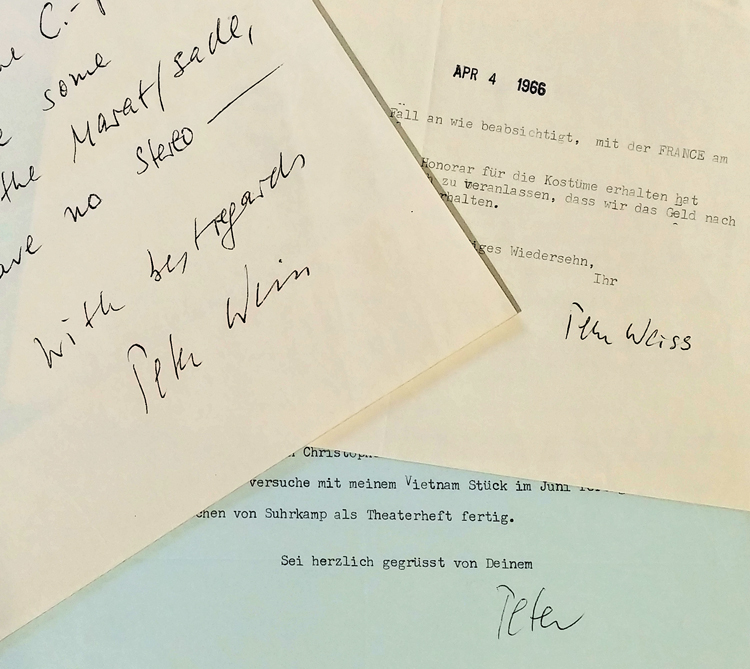 C.-
some
the Marat/Sade,
have no Stereo —
with best regards
Peter Weiss
APR 4 1966
Fall an wie beabsichtigt, mit der FRANCE am
Honorar für die Kostüme erhalten hat
zu veranlassen, dass wir das Geld nach
rhalten.
iges Wiedersehn,
Ihr
Peter Weiss
Christoph
versuche mit meinem Vietnam Stück im Juni
chen von Suhrkamp als Theaterheft fertig.
Sei herzlich gegrüsst von Deinem
Peter